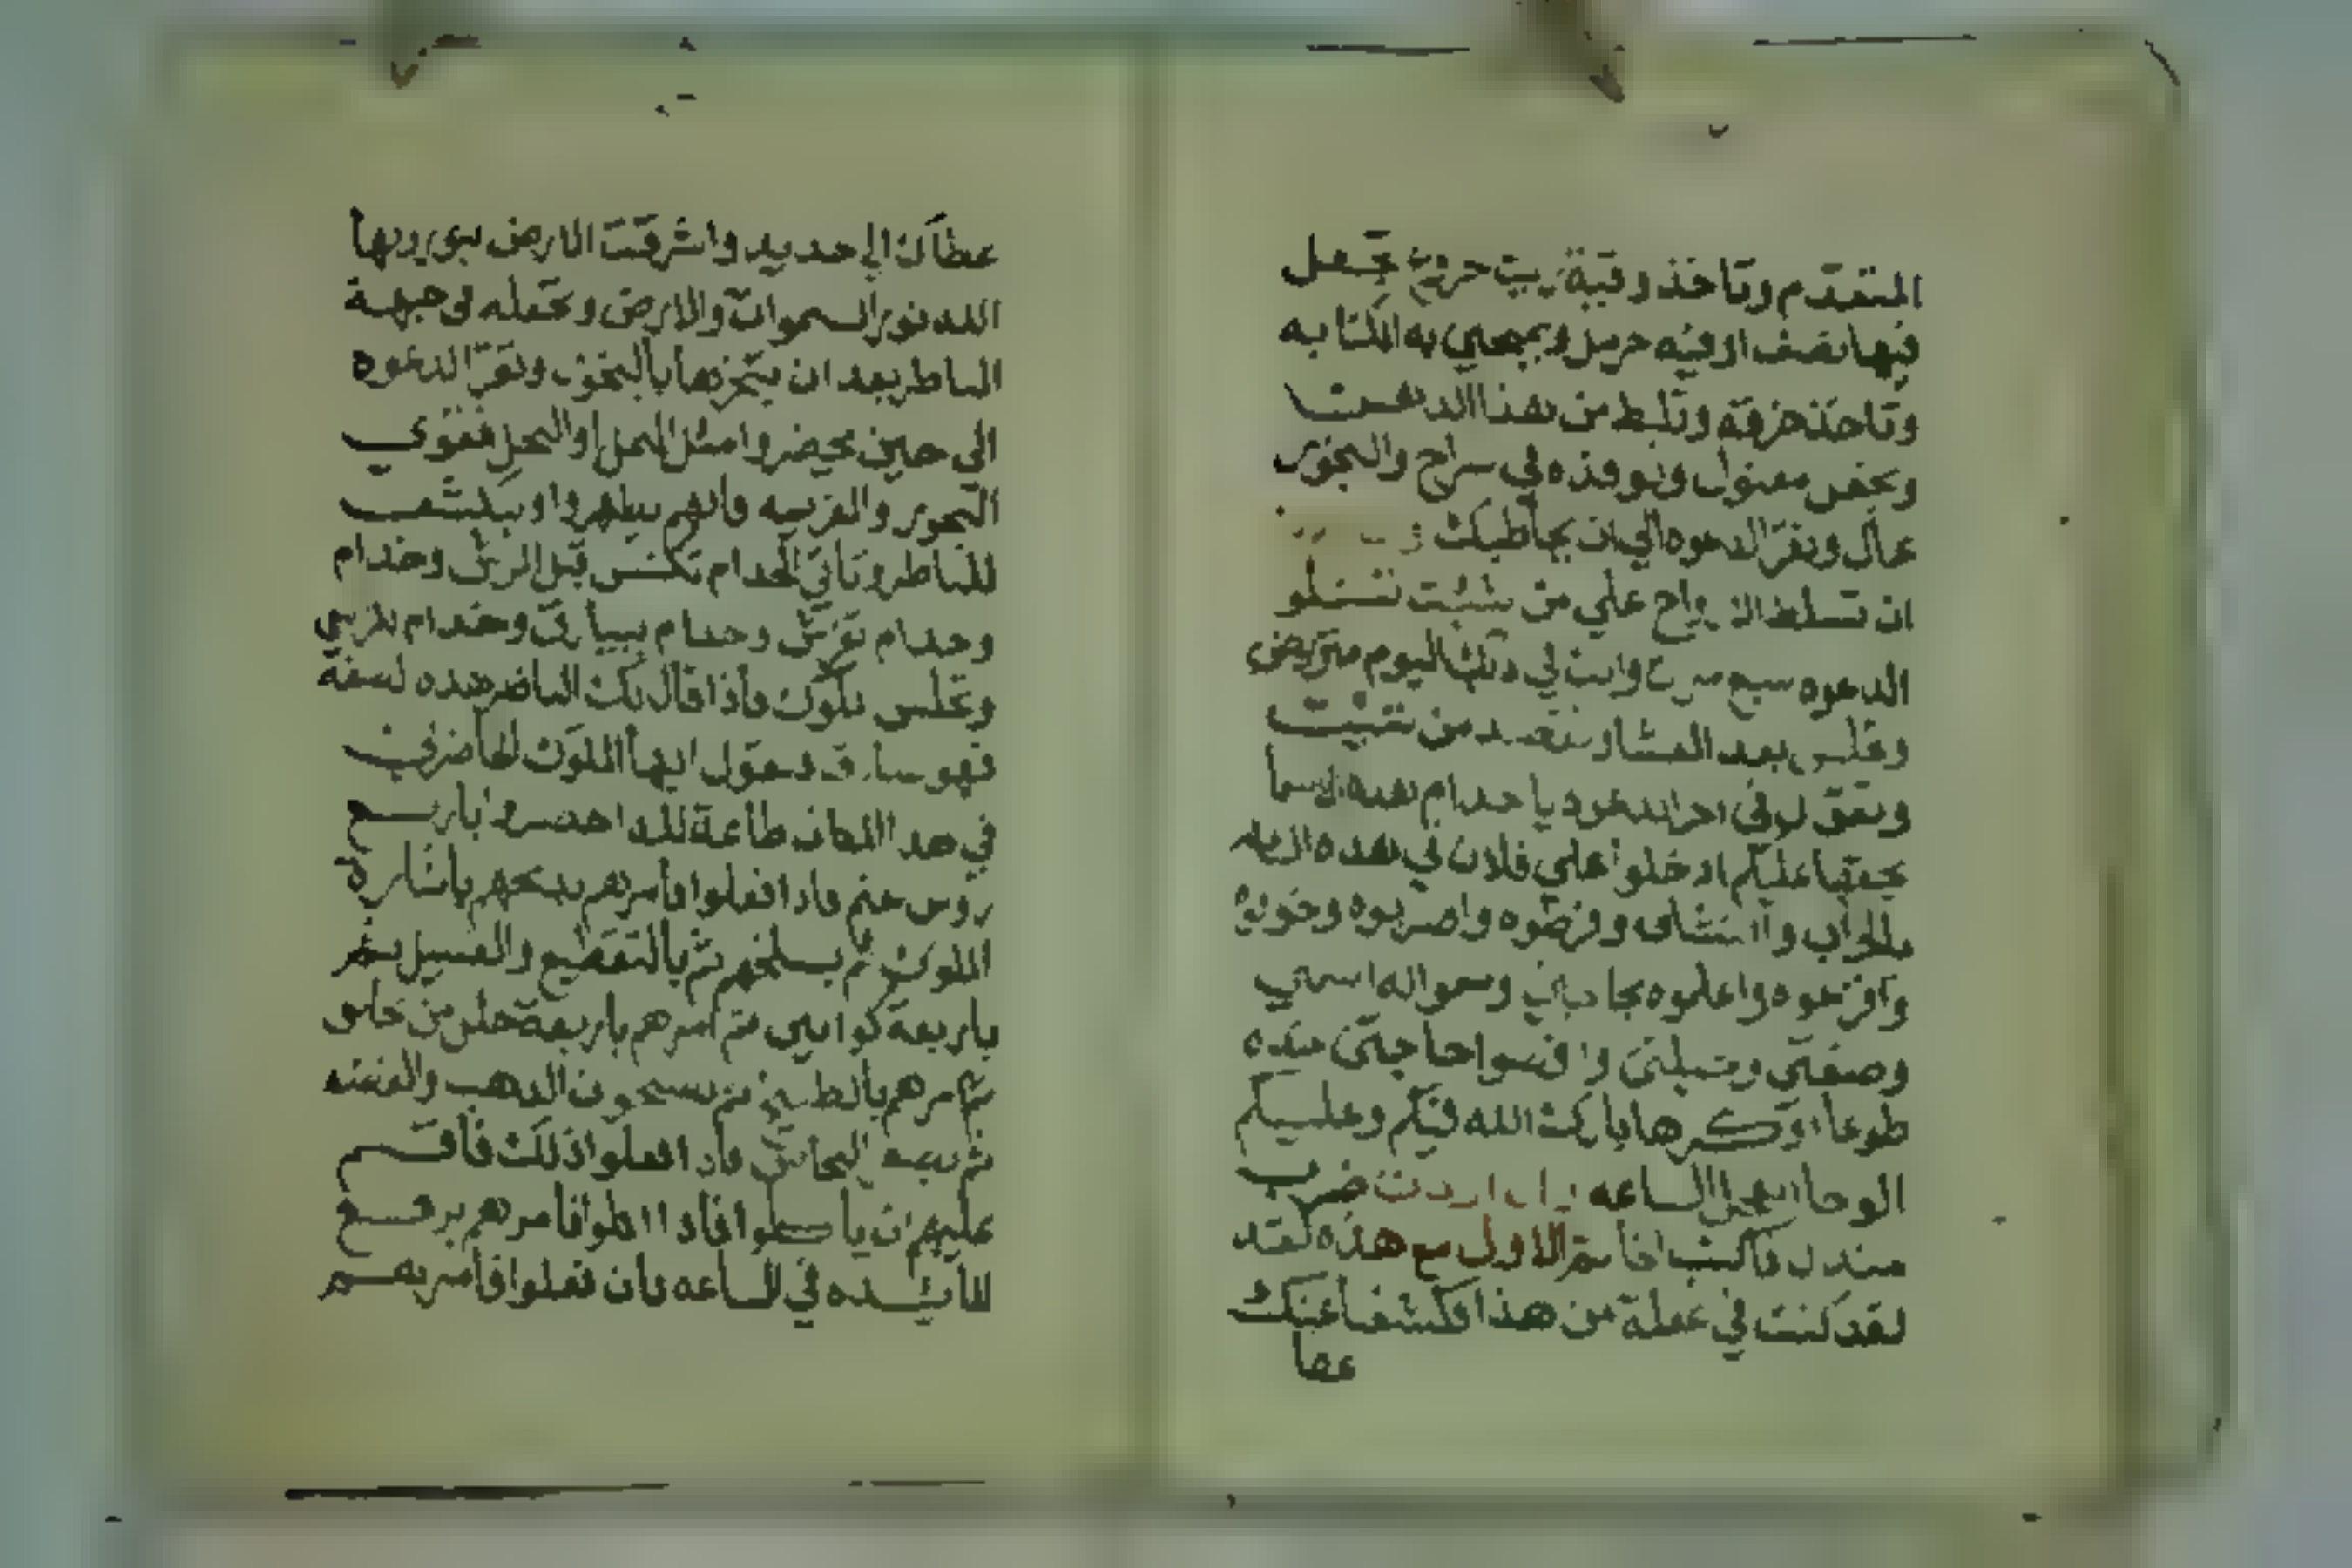 المتقدم وتاخذ وقية زيت حروع جعل
فيها نصف اوقيه حرمل وتمحي به الكتابه
وتاخذ خرقه وتلبط من هذا الدهن
معزول وتوقده في سراج والبخور
عال وتقرا الدعوه الي ان يخاطبك
ان تسلط الارواح علي من شئت تتلو
الدعوه سبع وانت في ذلك اليوم متريض
وتجلس بعد العشا وتقصد من شيت
وتقول في اخر الدعوه يا خدام هذه الاسما
بحقها عليكم ادخلوا علي فلان في هذه
بالحراب واضربوه وخوفوه
وافزعوه واعلموه وسموا له اسمي
وصفتي واقضوا حاجتي منه
طوعا او كرها بارك الله فيكم وعليكم
الوحا العجل الساعه اردت ضرب
مندل فاكتب خاتم الاول مع هذه لقد
لقد كنت في غفلة من هذا فكشفنا عنك
غطا
غطاك الي حديد واشرقت الارض بنور ربها
الله نور السموات والارض وتجعله في جبهة
الناظر بعد ان تبخرها بالبخور وتقرا الدعوه
الي حين يحضروا مثل النمل او النحل فقوي
البخور والعزيمه فانهم يظهروا وينكشف
للناظر وتاتي الخدام تكنس قبل الرش وخدام
وخدام ترش وخدام ببيارق وخدام بكراسي
وتجلس ملوك فاذا قال لك الناظر هذه
فهو صادق فقول ايها الملوك الحاضرين
في هذا المكان طاعة لله احضروا باربع
روس غنم فاذا فعلوا فامرهم بذبحهم باشارة
الملوك ثم بسلخهم ثم بالتقطيع والغسيل ثم
باربعة كوانين ثم امرهم باربعة حلل من خاص
ثم امرهم بالطبيخ ثم الذهب والفضه
ثم النحاس فاذا فعلوا ذلك فاقسم
عليهم ان ياكلوا فاذا اكلوا فامرهم برفع
المائده في الساعه فان فعلوا فامر بهم